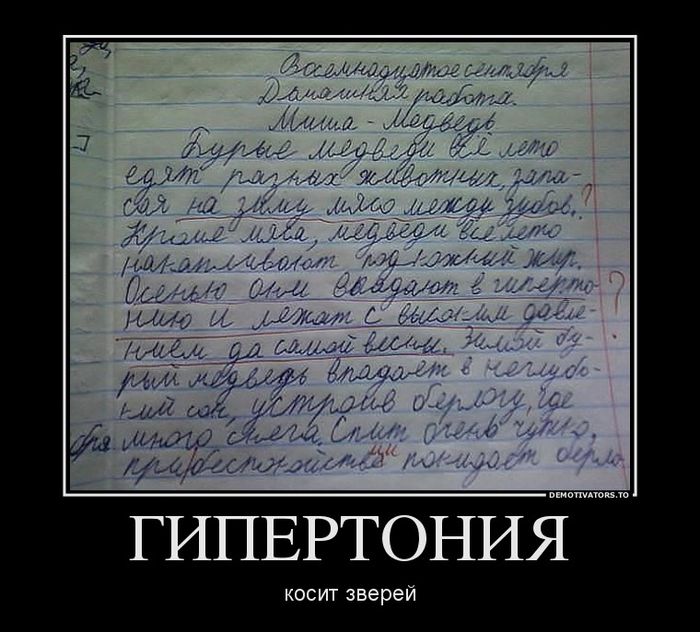 Восемнадцатое сентября
Домашняя работа.
Миша - Медведь
Бурые медведи всё лето
едят разных животных, запа-
сая на зиму мясо между зубов. ?
Кроме мяса, медведи всё лето
накапливают подкожный жир.
Осенью они впадают в гиперто- ?
нию и лежат с высоким давле-
нием до самой весны. Зимой бу-
рый медведь впадает в неглубо-
кий сон, устроив берлогу, где
много снега. Спит очень чутко,
при беспокойстве покидает берло
DEMOTIVATORS.TO
ГИПЕРТОНИЯ
косит зверей